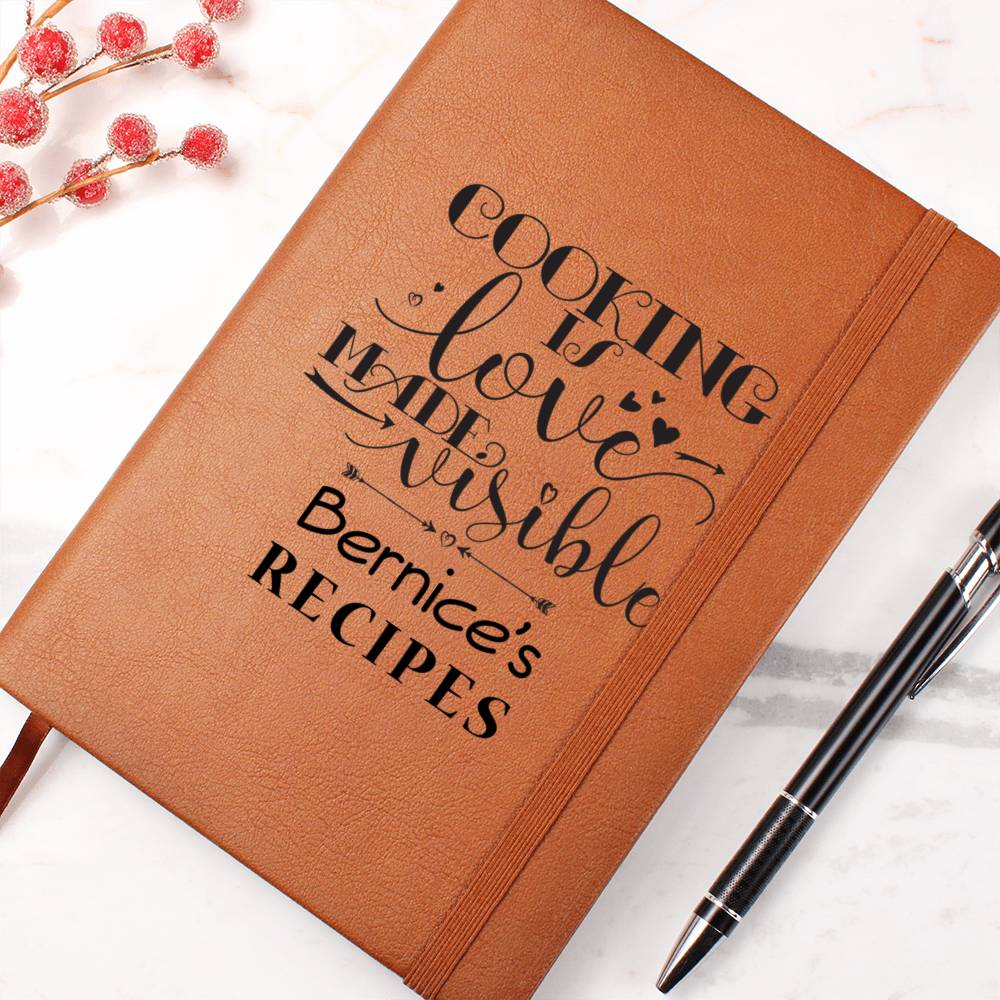 COOKING
IS
love
MADE
visible
Bernice's
RECIPES